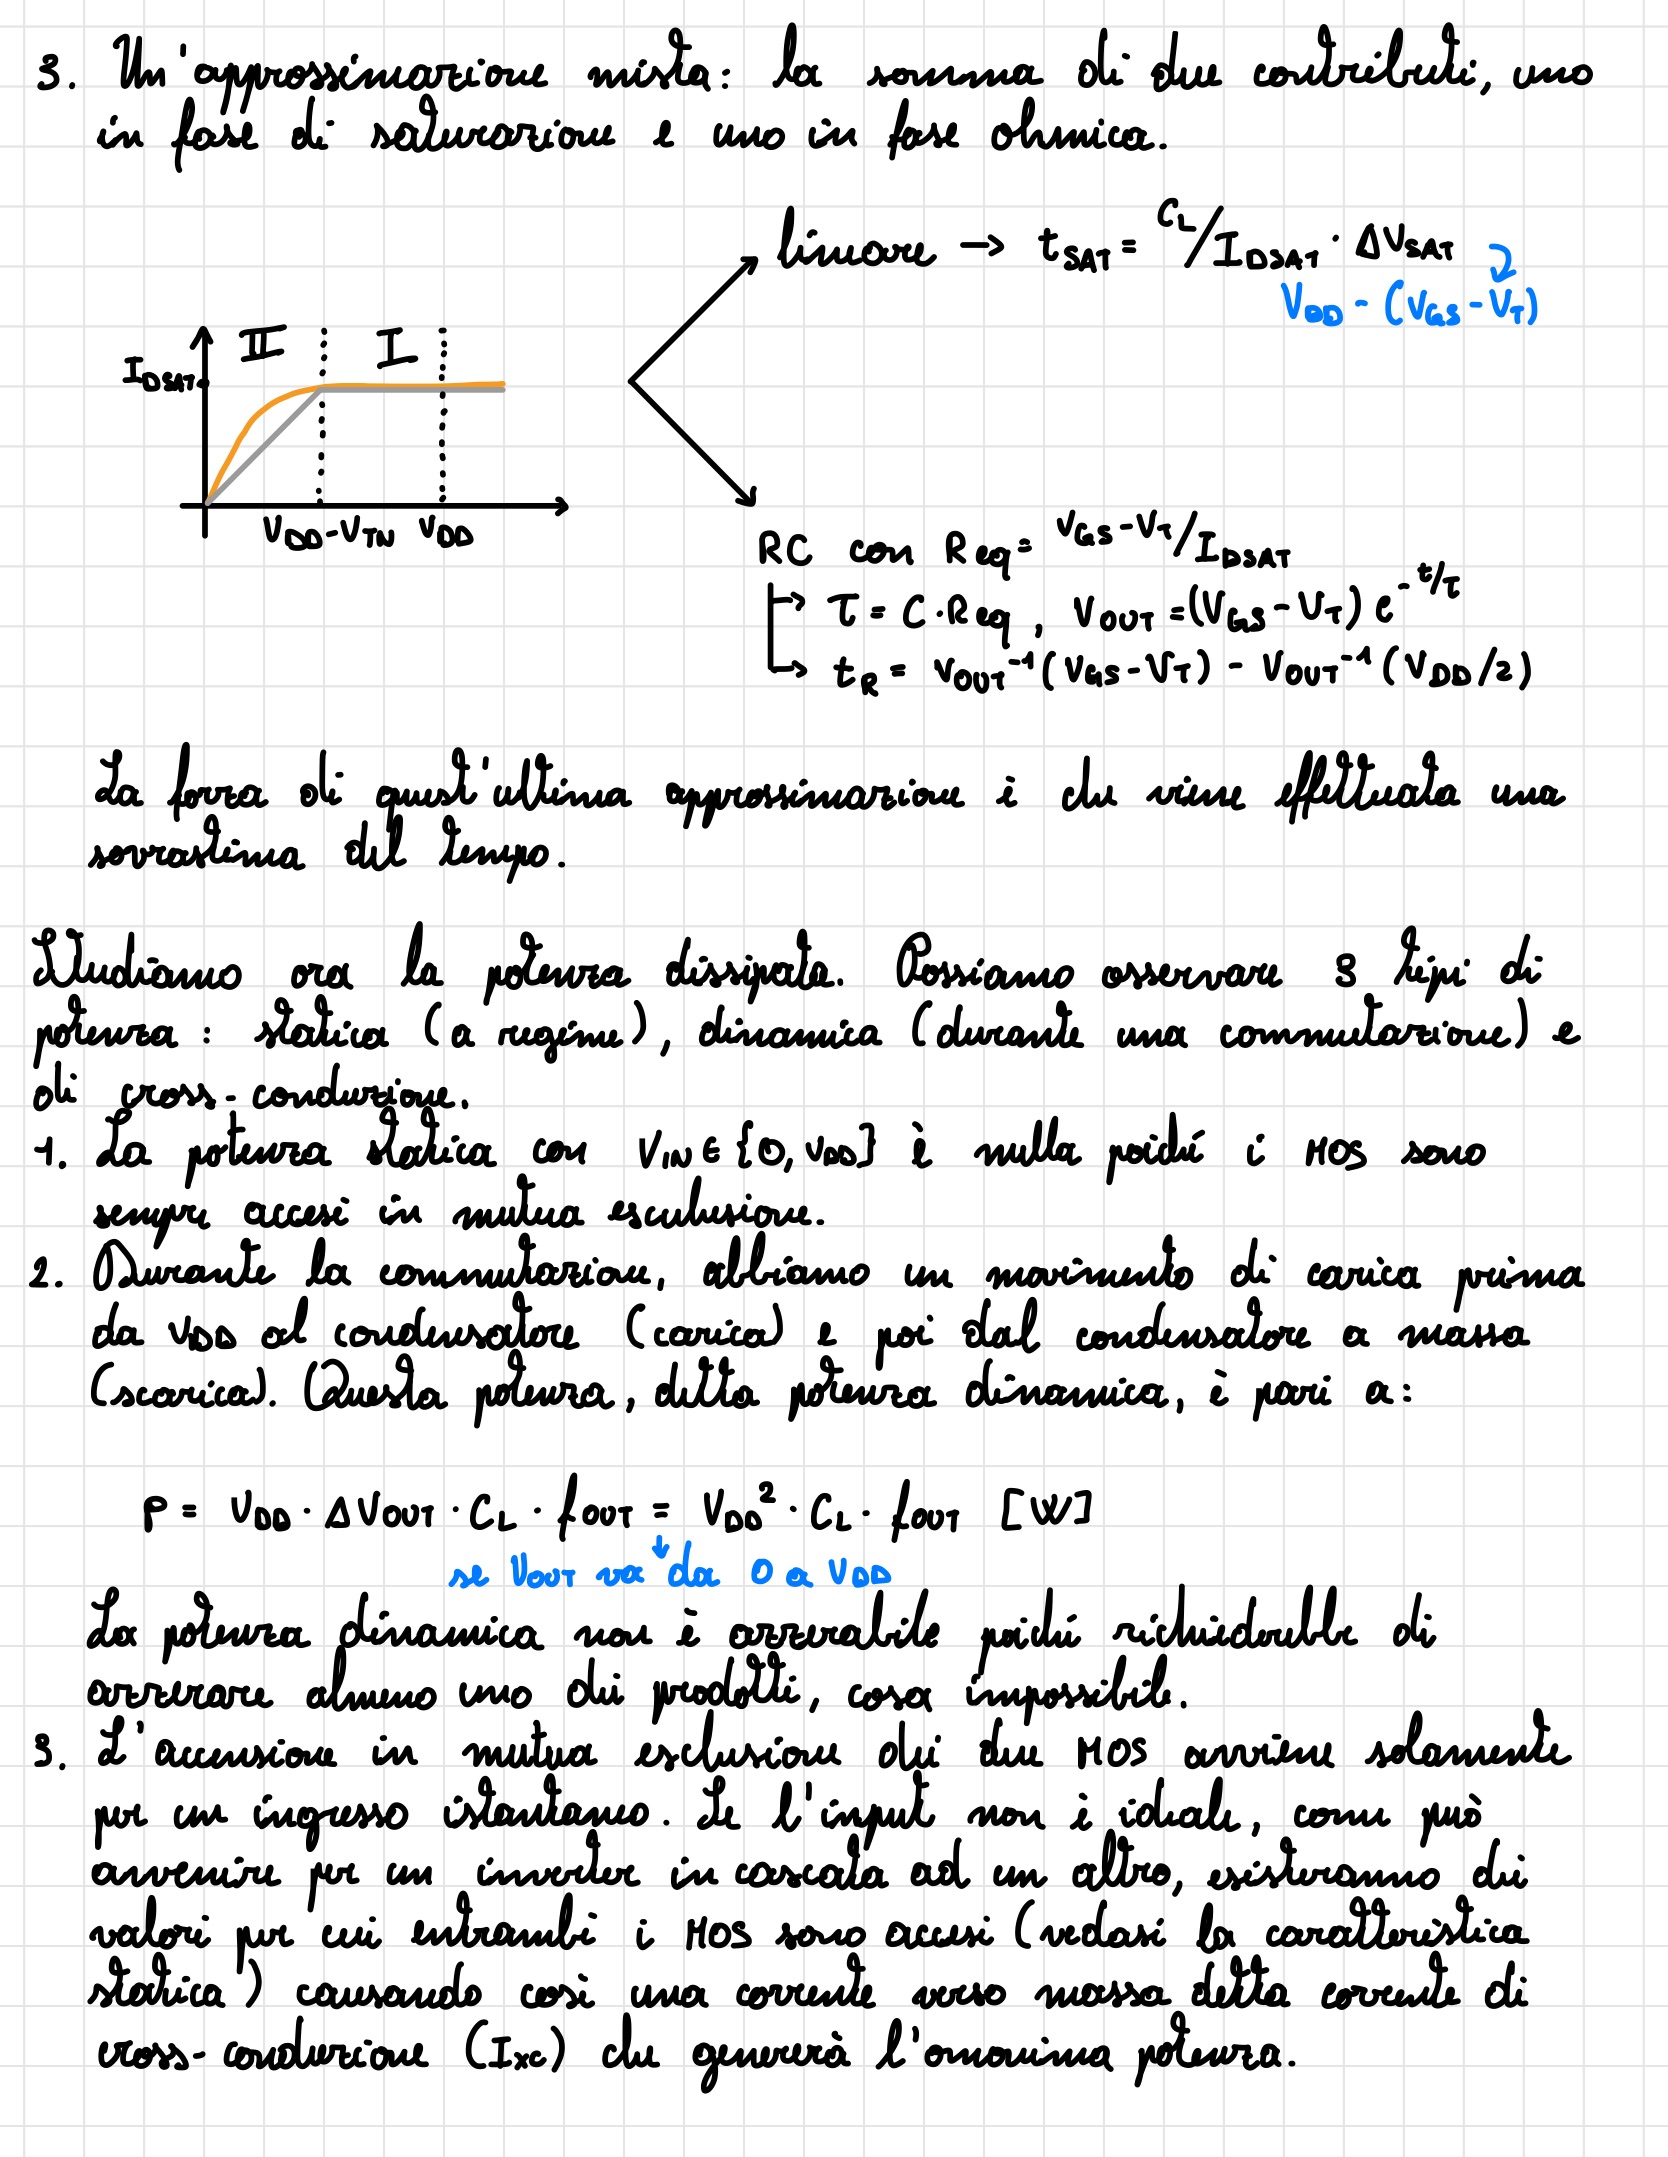 3. Un'approssimazione mista: la somma di due contributi, uno
in fase di saturazione e uno in fase ohmica.
lineare → tSAT = CL/IDSAT · ΔVSAT
VDD - (VGS - VT)
II I
IDSAT
VDD-VTN VDD
RC con Req = VGS-VT/IDSAT
τ = C·Req, VOUT = (VGS-VT) e^-t/τ
tR = VOUT⁻¹(VGS-VT) - VOUT⁻¹(VDD/2)
La forza di quest'ultima approssimazione è che viene effettuata una
sovrastima del tempo.
Studiamo ora la potenza dissipata. Possiamo osservare 3 tipi di
potenza: statica (a regime), dinamica (durante una commutazione) e
di cross-conduzione.
1. La potenza statica con VIN ∈ {0, VDD} è nulla poiché i MOS sono
sempre accesi in mutua esculusione.
2. Durante la commutazione, abbiamo un movimento di carica prima
da VDD al condensatore (carica) e poi dal condensatore a massa
(scarica). Questa potenza, detta potenza dinamica, è pari a:
P = VDD · ΔVOUT · CL · fOUT = VDD² · CL · fOUT [W]
se VOUT va da 0 a VDD
La potenza dinamica non è azzerabile poiché richiederebbe di
azzerare almeno uno dei prodotti, cosa impossibile.
3. L'accensione in mutua esclusione dei due MOS avviene solamente
per un ingresso istantaneo. Se l'input non è ideale, come può
avvenire per un inverter in cascata ad un altro, esisteranno dei
valori per cui entrambi i MOS sono accesi (vedasi la caratteristica
statica) causando così una corrente verso massa detta corrente di
cross-conduzione (Ixc) che genererà l'omonima potenza.